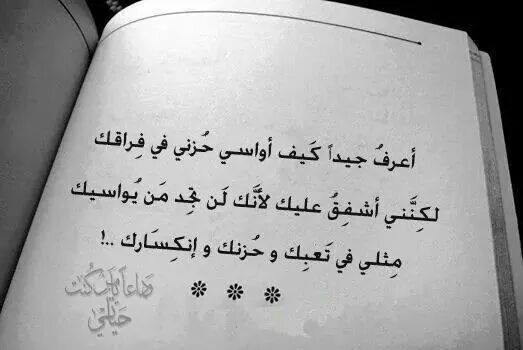 أعرفُ جيداً كَيف أواسي حُزني في فِراقك
لكِنَّني أشفِقُ عليك لأنَّك لَن تَجِد مَن يُواسيك
مِثلي في تَعبِك و حُزنك و إنكِسَارك ..!
* * *
وداعاً يا من كنت
حياتي